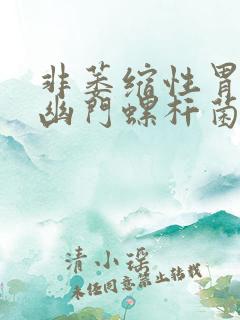 非萎缩性胃
幽门螺杆菌
清小瑶
未经同意禁止转载